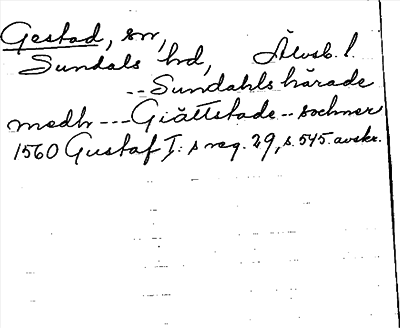 Gestad, sn,
Sundals hd, Älvsb. l.
-- Sundahls härade
medh --- Giättstade -- sochner
1560 Gustaf I:s reg. 29, s. 545. avskr.